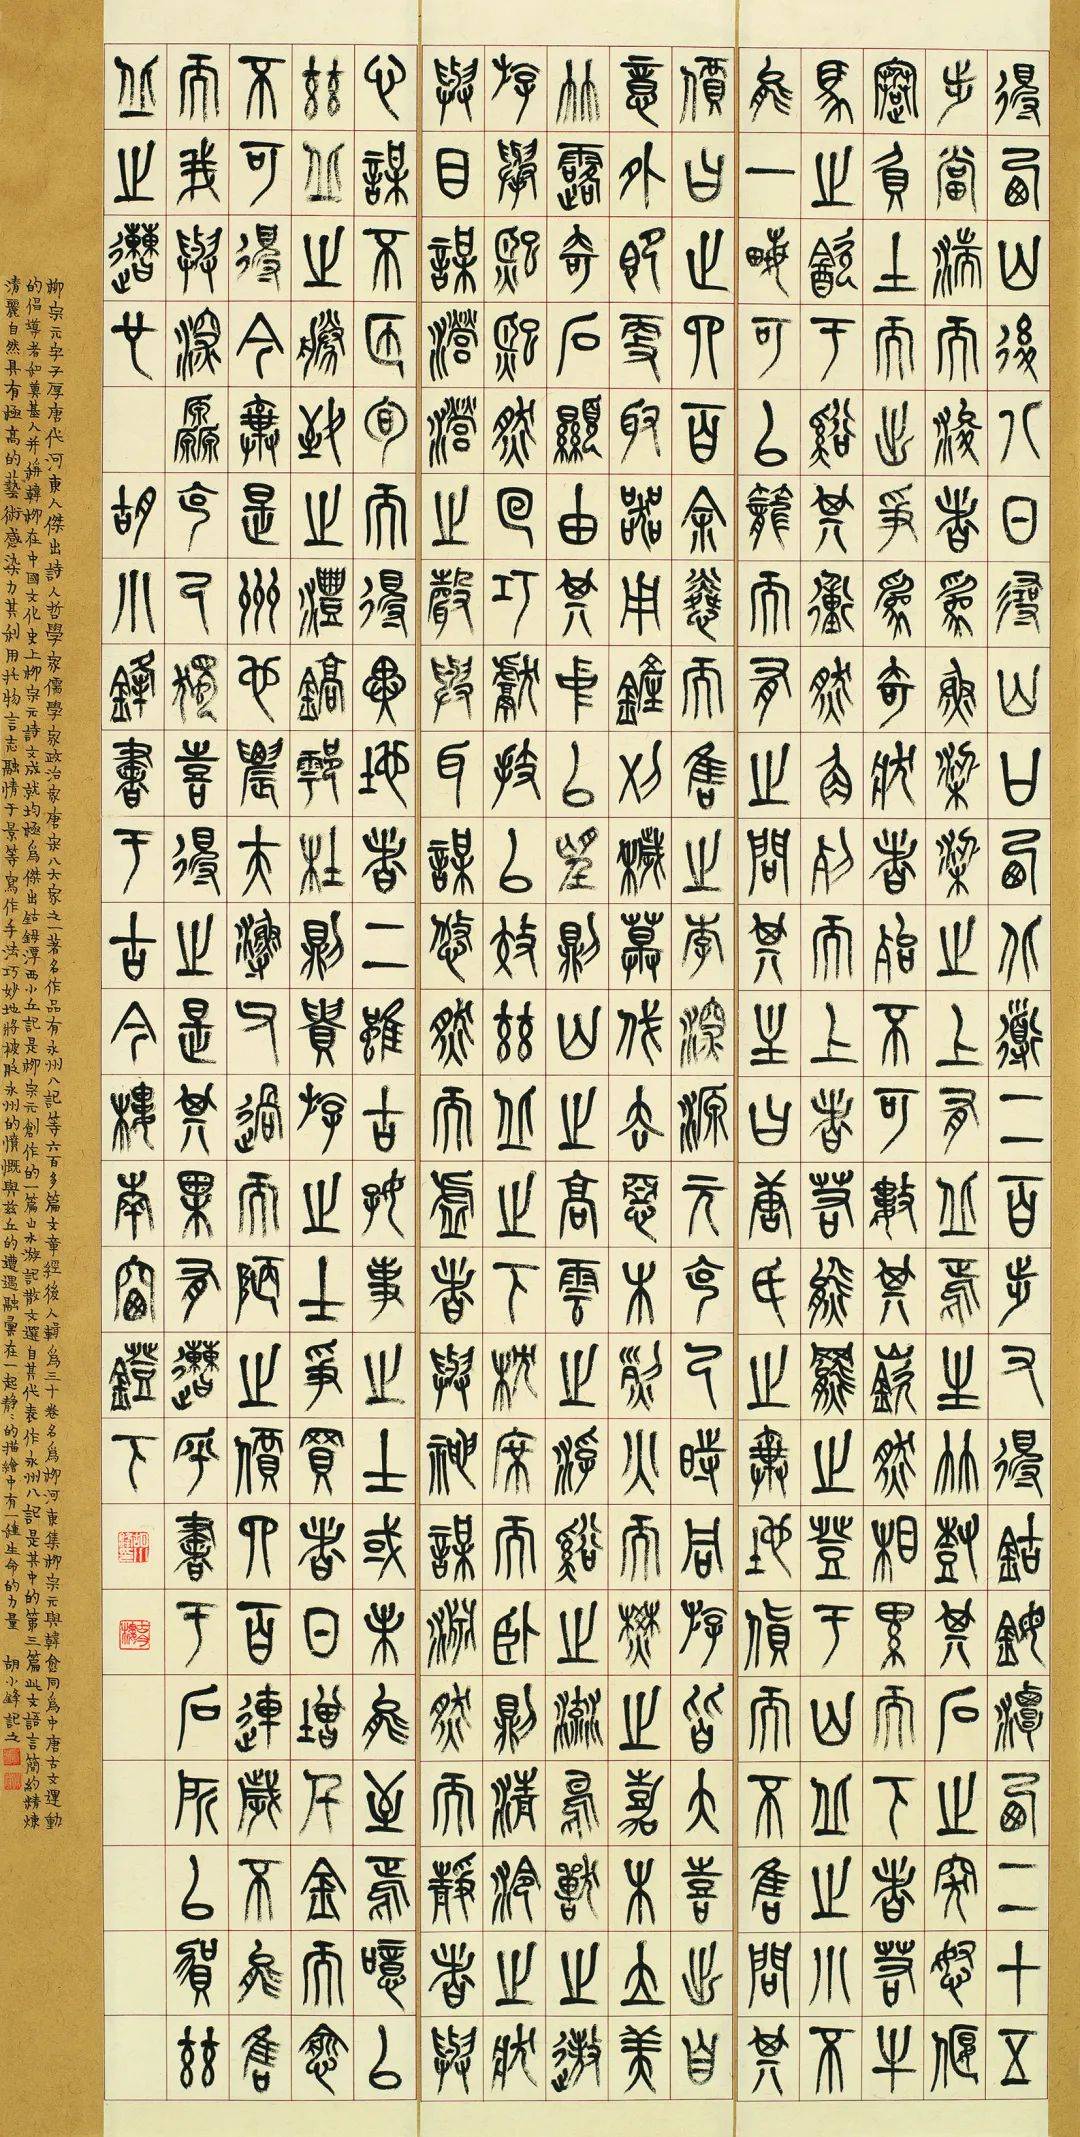 得西山後八日尋山口西北道二百步又得鈷鉧潭西二十五
步當湍而浚者為魚梁梁之上有丘焉生竹樹其石之突怒偃
蹇負土而出爭為奇狀者殆不可數其嶔然相累而下者若牛
馬之飲于谿其衝然角列而上者若熊羆之登于山丘之小不
能一畝可以籠而有之問其主曰唐氏之棄地貨而不售問其
價曰止四百余憐而售之李深源元克己時同游皆大喜出自
意外即更取器用鏟刈穢草伐去惡木烈火而焚之嘉木立美
竹露奇石顯由其中以望則山之高雲之浮谿之流鳥獸之遨
游舉熙熙然回巧獻技以效茲丘之下枕席而臥則清泠之狀
與目謀瀯瀯之聲與耳謀悠然而虛者與神謀淵然而靜者與
心謀不匝旬而得異地者二雖古好事之士或未能至焉噫以
茲丘之勝致之灃鎬鄠杜則貴游之士爭買者日增千金而愈
不可得今棄是州也農夫漁父過而陋之價四百連歲不能售
而我與深源克己獨喜得之是其果有遭乎書于石所以賀茲
丘之遭也 胡小鋒書于古今樓南窗鐙下
柳宗元字子厚唐代河東人傑出詩人哲學家儒學家政治家唐宋八大家之一著名作品有永州八記等六百多篇文章經後人輯為三十卷名為柳河東集柳宗元與韓愈同為中唐古文運動
的倡導者如奠基人并稱韓柳在中國文化史上柳宗元詩文成就均極為傑出鈷鉧潭西小丘記是柳宗元創作的一篇山水游記散文選自其代表作永州八記是其中的第三篇此文語言簡約精煉
清麗自然具有極高的藝術感染力其利用托物言志融情于景等寫作手法巧妙地將被貶永州的憤慨與茲丘的遭遇融彙在一起靜〻的描繪中有一種生命的力量 胡小鋒記之